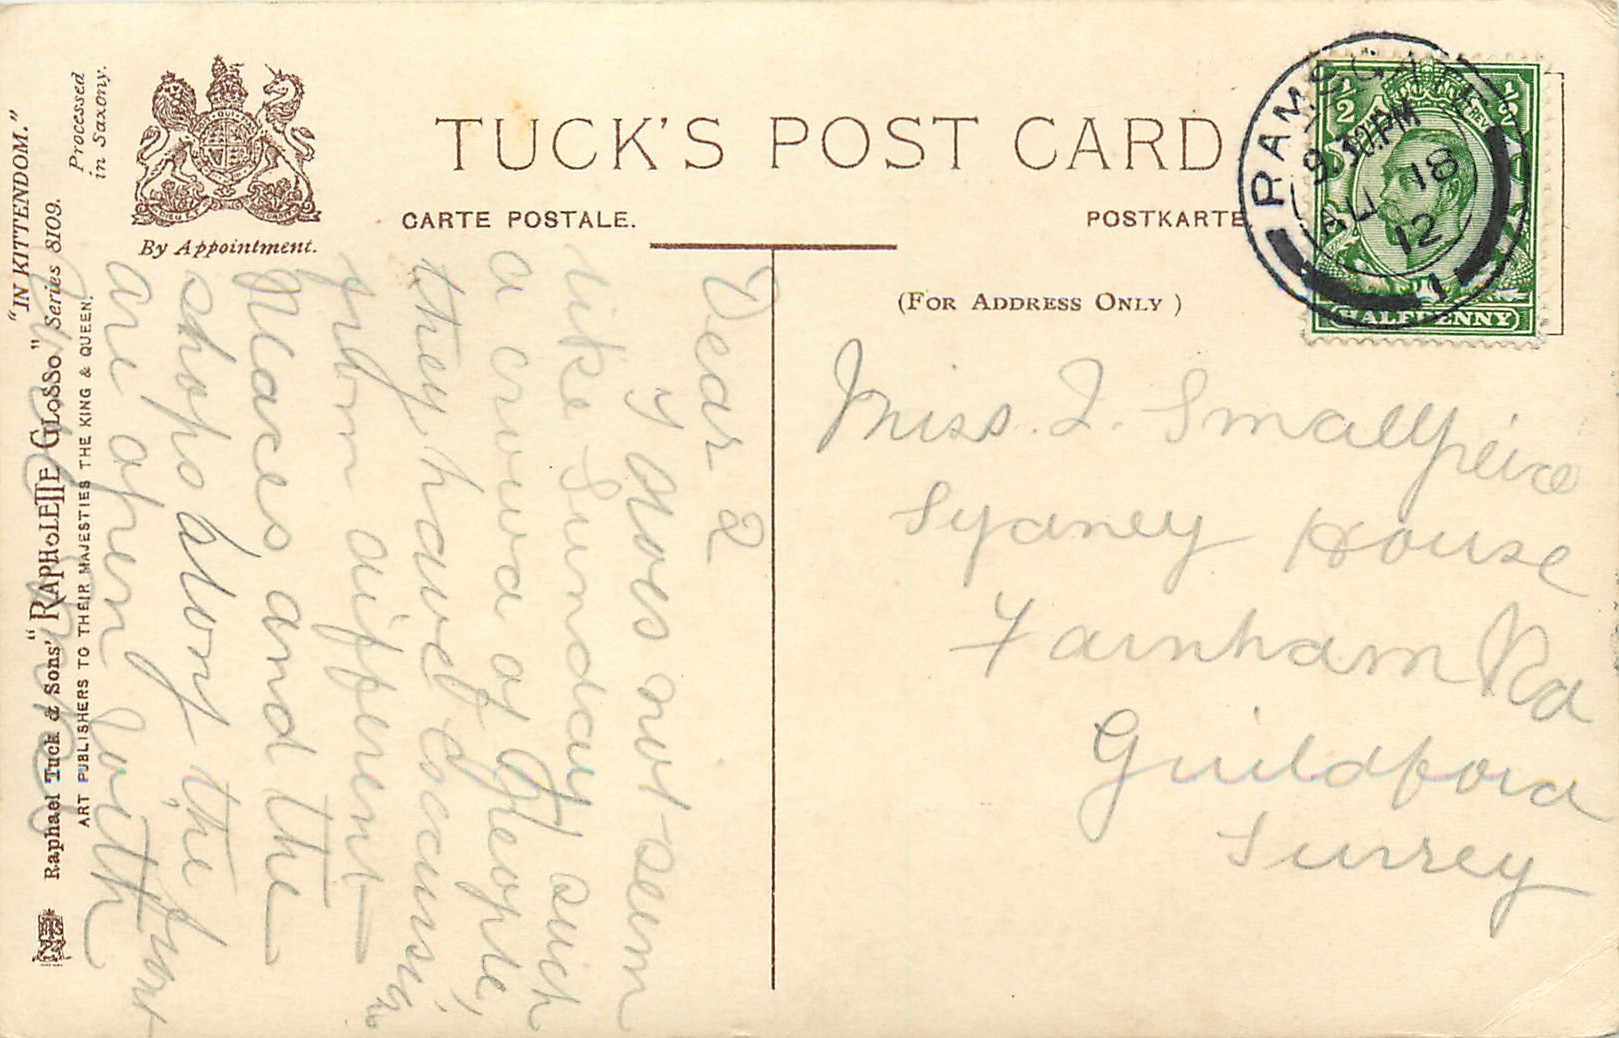 "IN KITTENDOM."
Raphael Tuck & Sons' "RAPHOLETTE GLOSSO" Series 8109.
ART PUBLISHERS TO THEIR MAJESTIES THE KING & QUEEN.
Processed
in Saxony.
By Appointment.
TUCK'S POST CARD
CARTE POSTALE.
POSTKARTE
(FOR ADDRESS ONLY )
RAMSGATE
9.30 PM
18
12
1
½
½
HALFPENNY
Dear 2
does not seem
like Sunday such
a crowd of people,
they have excursin
from different
places and the
shops along the front
are open with
Miss. I. Smallpeice
Sydney House
Farnham Rd
Guildford
Surrey